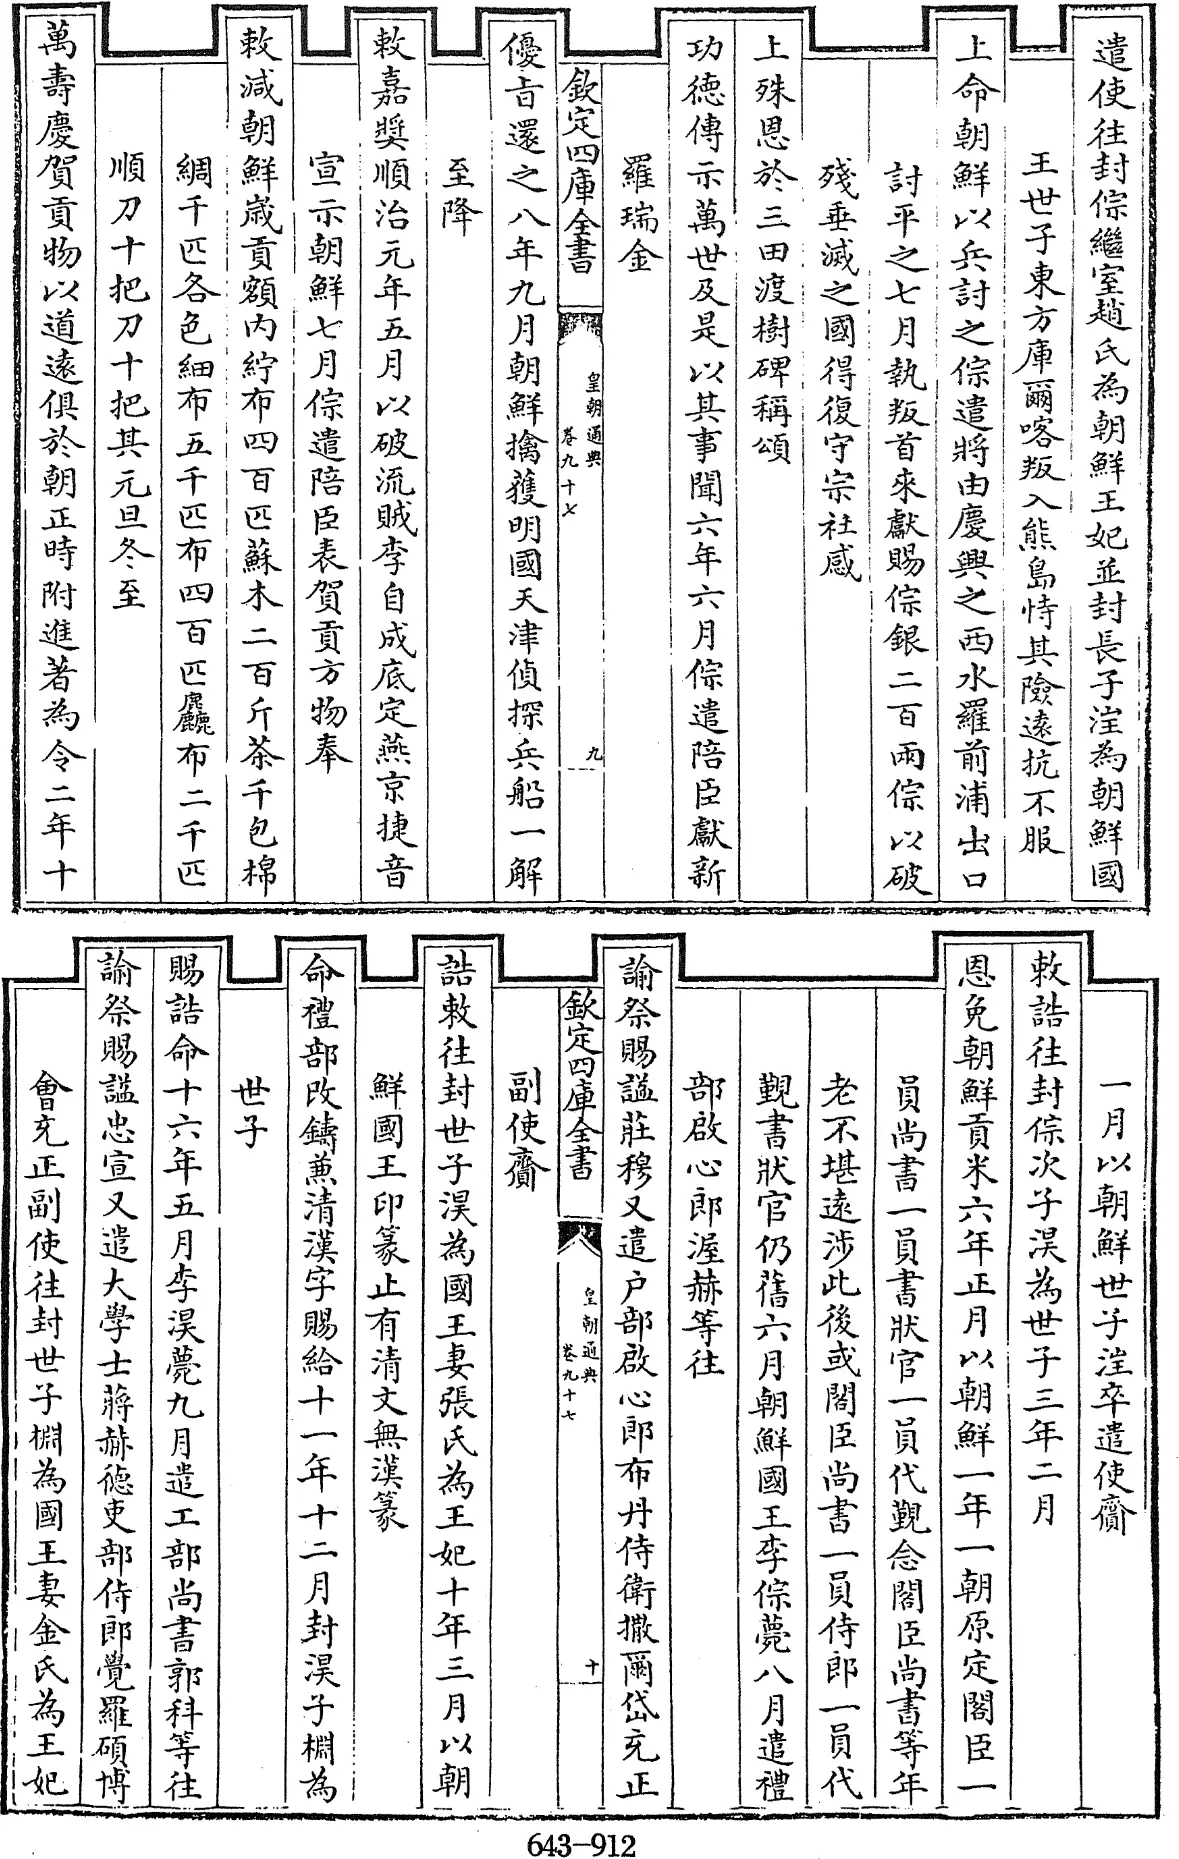 遣使往封倧繼室趙氏為朝鮮王妃並封長子𣳫為朝鮮國
王世子東方庫爾喀叛入熊島恃其險遠抗不服
上命朝鮮以兵討之倧遣將由慶興之西水羅前浦出口
討平之七月執叛首來獻賜倧銀二百兩倧以破
殘垂滅之國得復守宗社感
上殊恩於三田渡樹碑稱頌
功德傳示萬世及是以其事聞六年六月倧遣陪臣獻新
羅瑞金
欽定四庫全書
皇朝通典
卷九十七
九
優旨還之八年九月朝鮮擒獲明國天津偵探兵船一解
至降
敕嘉獎順治元年五月以破流賊李自成底定燕京捷音
宣示朝鮮七月倧遣陪臣表賀貢方物奉
敕減朝鮮歲貢額内紵布四百匹蘇木二百斤茶千包棉
綢千匹各色細布五千匹布四百匹麤布二千匹
順刀十把刀十把其元旦冬至
萬壽慶賀貢物以道遠俱於朝正時附進著為令二年十
一月以朝鮮世子𣳫卒遣使齎
敕誥往封倧次子淏為世子三年二月
恩免朝鮮貢米六年正月以朝鮮一年一朝原定閣臣一
員尚書一員書狀官一員代覲念閣臣尚書等年
老不堪遠涉此後或閣臣尚書一員侍郎一員代
覲書狀官仍舊六月朝鮮國王李倧薨八月遣禮
部啟心郎渥赫等往
諭祭賜謚莊穆又遣户部啟心郎布丹侍衛撒爾岱充正
欽定四庫全書
皇朝通典
卷九十七
十
副使齎
誥敕往封世子淏為國王妻張氏為王妃十年三月以朝
鮮國王印篆止有清文無漢篆
命禮部改鑄兼清漢字賜給十一年十二月封淏子棩為
世子
賜誥命十六年五月李淏薨九月遣工部尚書郭科等往
諭祭賜謚忠宣又遣大學士蔣赫德吏部侍郎覺羅碩博
會充正副使往封世子棩為國王妻金氏為王妃
643-912